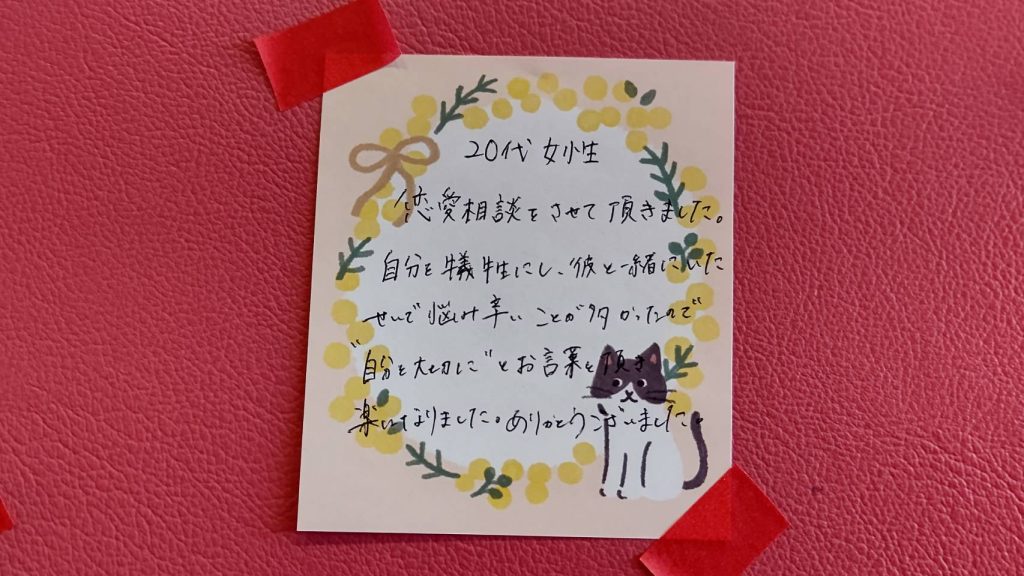 20代 女性
恋愛相談をさせて頂きました。
自分を犠牲にし、彼と一緒にいた
せいで悩み辛いことが多かったので
"自分を大切に"とお言葉を頂き
楽になりました。ありがとうございました。